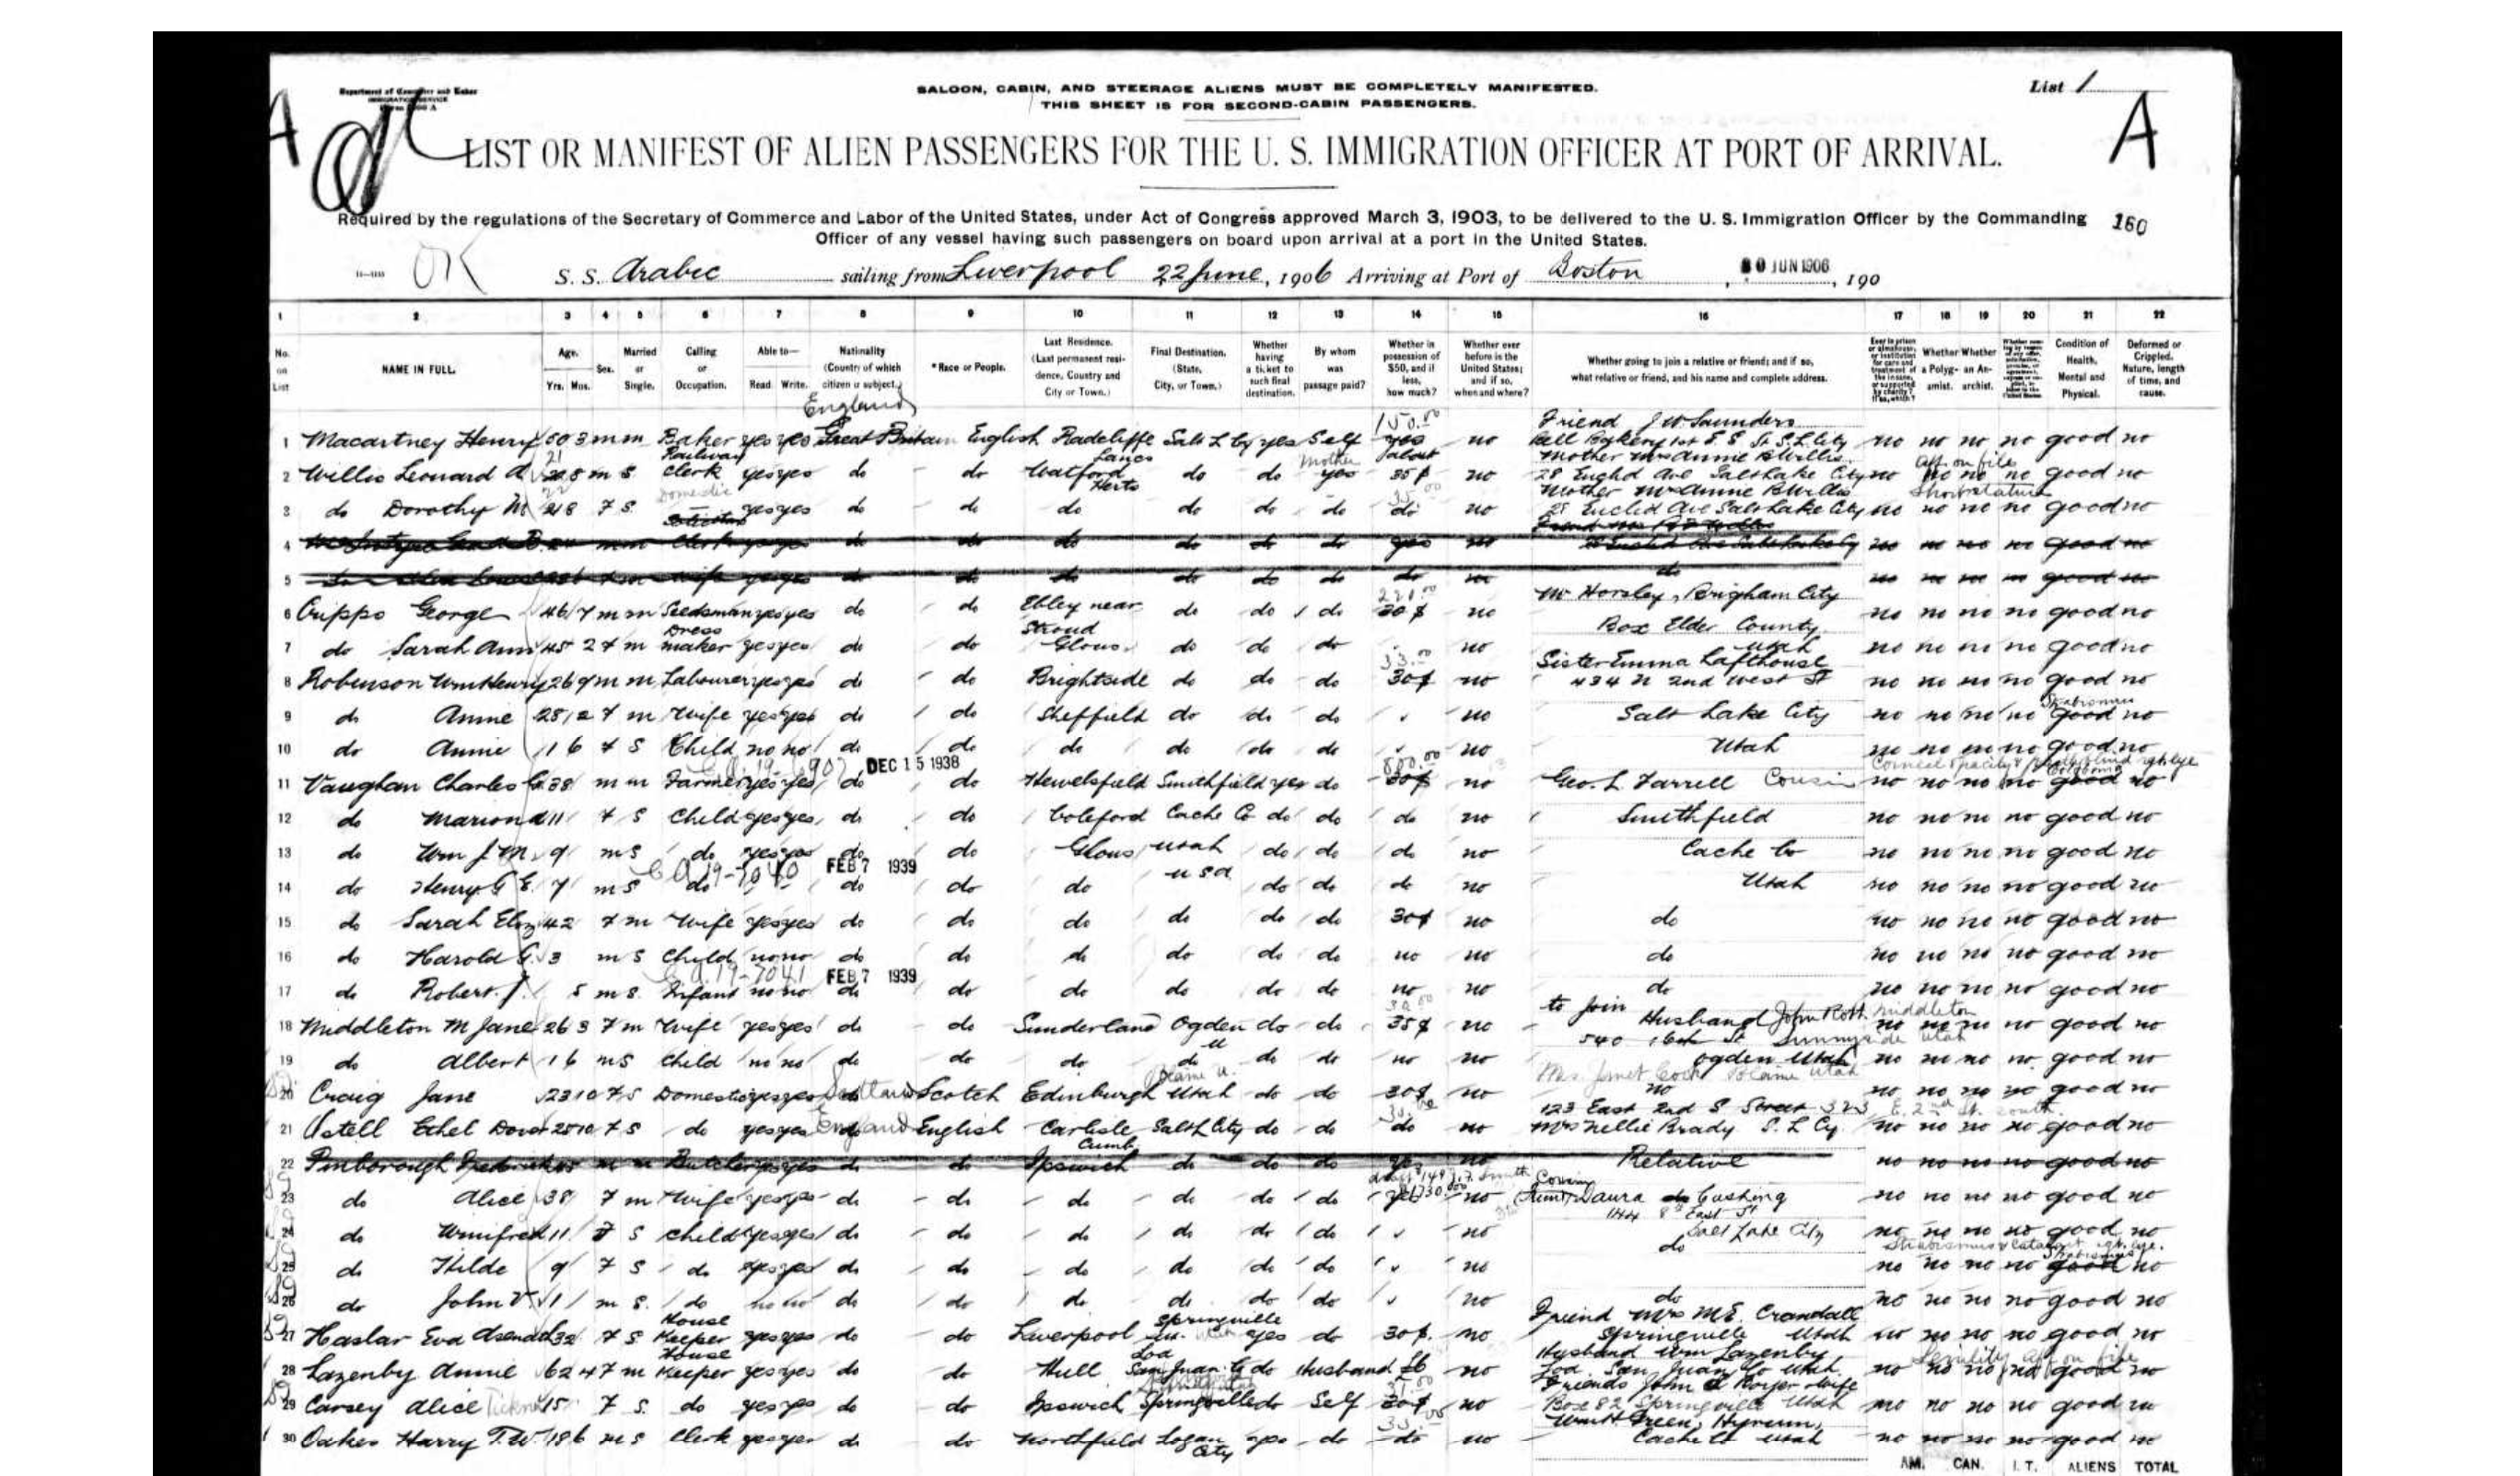 Department of Commerce and Labor
IMMIGRATION SERVICE
SALOON, CABIN, AND STEERAGE ALIENS MUST BE COMPLETELY MANIFESTED.
THIS SHEET IS FOR SECOND-CABIN PASSENGERS.
List 1
A
A
LIST OR MANIFEST OF ALIEN PASSENGERS FOR THE U. S. IMMIGRATION OFFICER AT PORT OF ARRIVAL.
Required by the regulations of the Secretary of Commerce and Labor of the United States, under Act of Congress approved March 3, 1903, to be delivered to the U. S. Immigration Officer by the Commanding
Officer of any vessel having such passengers on board upon arrival at a port in the United States.
160
OK
S. S. Arabic sailing from Liverpool 22 June, 1906 Arriving at Port of Boston, 30 JUN 1906, 190
1 2 3 4 5 6 7 8 9 10 11 12 13 14 15 16 17 18 19 20 21 22
No. on List
NAME IN FULL.
Age. Yrs. Mos.
Sex.
Married or Single.
Calling or Occupation.
Able to— Read. Write.
Nationality (Country of which citizen or subject.)
*Race or People.
Last Residence. (Last permanent residence, Country and City or Town.)
Final Destination. (State, City, or Town.)
Whether having a ticket to such final destination.
By whom was passage paid?
Whether in possession of $50, and if less, how much?
Whether ever before in the United States; and if so, when and where?
Whether going to join a relative or friend; and if so, what relative or friend, and his name and complete address.
Whether a Polygamist.
Whether an Anarchist.
Condition of Health, Mental and Physical.
Deformed or Crippled. Nature, length of time, and cause.
England 150.00 Friend J W Saunders
1 Macartney Henry 50 3 m m Baker yes yes Great Britain English Radcliffe Lancs Salt L Cy yes Self yes no Bell Bakery S. L. City no no no no good no
2 Willis Leonard A 21 8 m S Railway Clerk yes yes do do Watford Herts do do Mother yes about 35 $ no Mother Mrs Annie B Willis 28 Euclid Ave Salt Lake City no no no no good no
aff. on file
3 do Dorothy M 21 8 f S Domestic yes yes do do do do do do do no Mother Mrs Annie B Willis 28 Euclid Ave Salt Lake City no no no no good no
Short stature
4 m m Clerk yes yes do do do do do do yes no no no no no good no
5 f m wife yes yes do do do do do do do no do no no no no good no
6 Cripps George 46 7 m m Seedsman yes yes do do Ebley near Stroud do do do 30 $ no Mr Horsley, Brigham City no no no no good no
7 do Sarah Ann 45 2 f m Dress maker yes yes do do Glous. do do do no Box Elder County Utah no no no no good no
8 Robinson Wm Henry 26 9 m m Labourer yes yes do do Brightside do do do 30 $ no Sister Emma Lofthouse 434 N 2nd West St no no no no good no
9 do Annie 28 2 f m Wife yes yes do do Sheffield do do do no Salt Lake City no no no no good no
10 do Annie 1 6 f S Child no no do do do do do do no Utah no no no no good no
DEC 15 1938
11 Vaughan Charles G. 38 m m Farmer yes yes do do Hewelsfield Smithfield yes do 800.00 30 $ no Geo. L. Farrell Cousin no no no no good no
12 do Marion 11 f S Child yes yes do do Coleford Cache Co do do do no Smithfield no no no no good no
13 do Wm J M 9 m S do yes yes do do Glous Utah do do do no Cache Co no no no no good no
FEB 7 1939
14 do Henry G E. 7 m S do do do do U S A do do do no Utah no no no no good no
15 do Sarah Eliz 42 f m Wife yes yes do do do do do do 30 $ no do no no no no good no
16 do Harold G. 3 m S Child no no do do do do do do no no do no no no no good no
C.A. 19-7041 FEB 7 1939
17 do Robert J. 5 m S. Infant no no do do do do do do no no do no no no no good no
18 Middleton M Jane 26 3 f m Wife yes yes do do Sunderland Ogden U do do 35 $ no to join Husband John Middleton 540 16th St Sunnyside Utah no no no no good no
19 do Albert 1 6 m S Child no no do do do do do do no no Ogden Utah no no no no good no
20 Craig Jane 23 10 f S Domestic yes yes Scotland Scotch Edinburgh Utah do do 30 $ no no no no no no good no
21 Astell Ethel Dora 25 10 f S do yes yes England English Carlisle Cumb Salt L City do do do no 123 East 2nd S Street 323 E. 2nd St. South. Mrs Nellie Brady S. L Cy. no no no no good no
22 Pinborough Frederick m m Butcher yes yes do do Ipswich do do do yes no Relative no no no no good no
23 do Alice 38 f m Wife yes yes do do do do do do yes no Laura Cushing no no no no good no
144 8th East St
24 do Winifred 11 f S child yes yes do do do do do do no Salt Lake City no no no no good no
25 do Hilde 9 f S do yes yes do do do do do do no do no no no no good no
26 do John V. 1 m S. do no no do do do do do do no do no no no no good no
27 Haslar Eva 32 f S House Keeper yes yes do do Liverpool Springville yes do 30 $ no Friend Mrs M.E. Crandall Springville Utah no no no no good no
28 Lazenby Annie 62 4 f m House Keeper yes yes do do Hull San Juan Co do Husband £6 no Husband Wm Lazenby San Juan Co Utah no no no no good no
Senility aff on file
29 Carsey Alice 15 f S. do yes yes do do Ipswich Springville do Self 30 $ no Friends John Wife Box 82 Springville Utah no no no no good no
30 Oakes Harry T. W. 18 6 m S Clerk yes yes do do Northfield Logan City yes do do no Wm H Green, Hyrum, Cache Co Utah no no no no good no
AM. CAN. I. T. ALIENS TOTAL